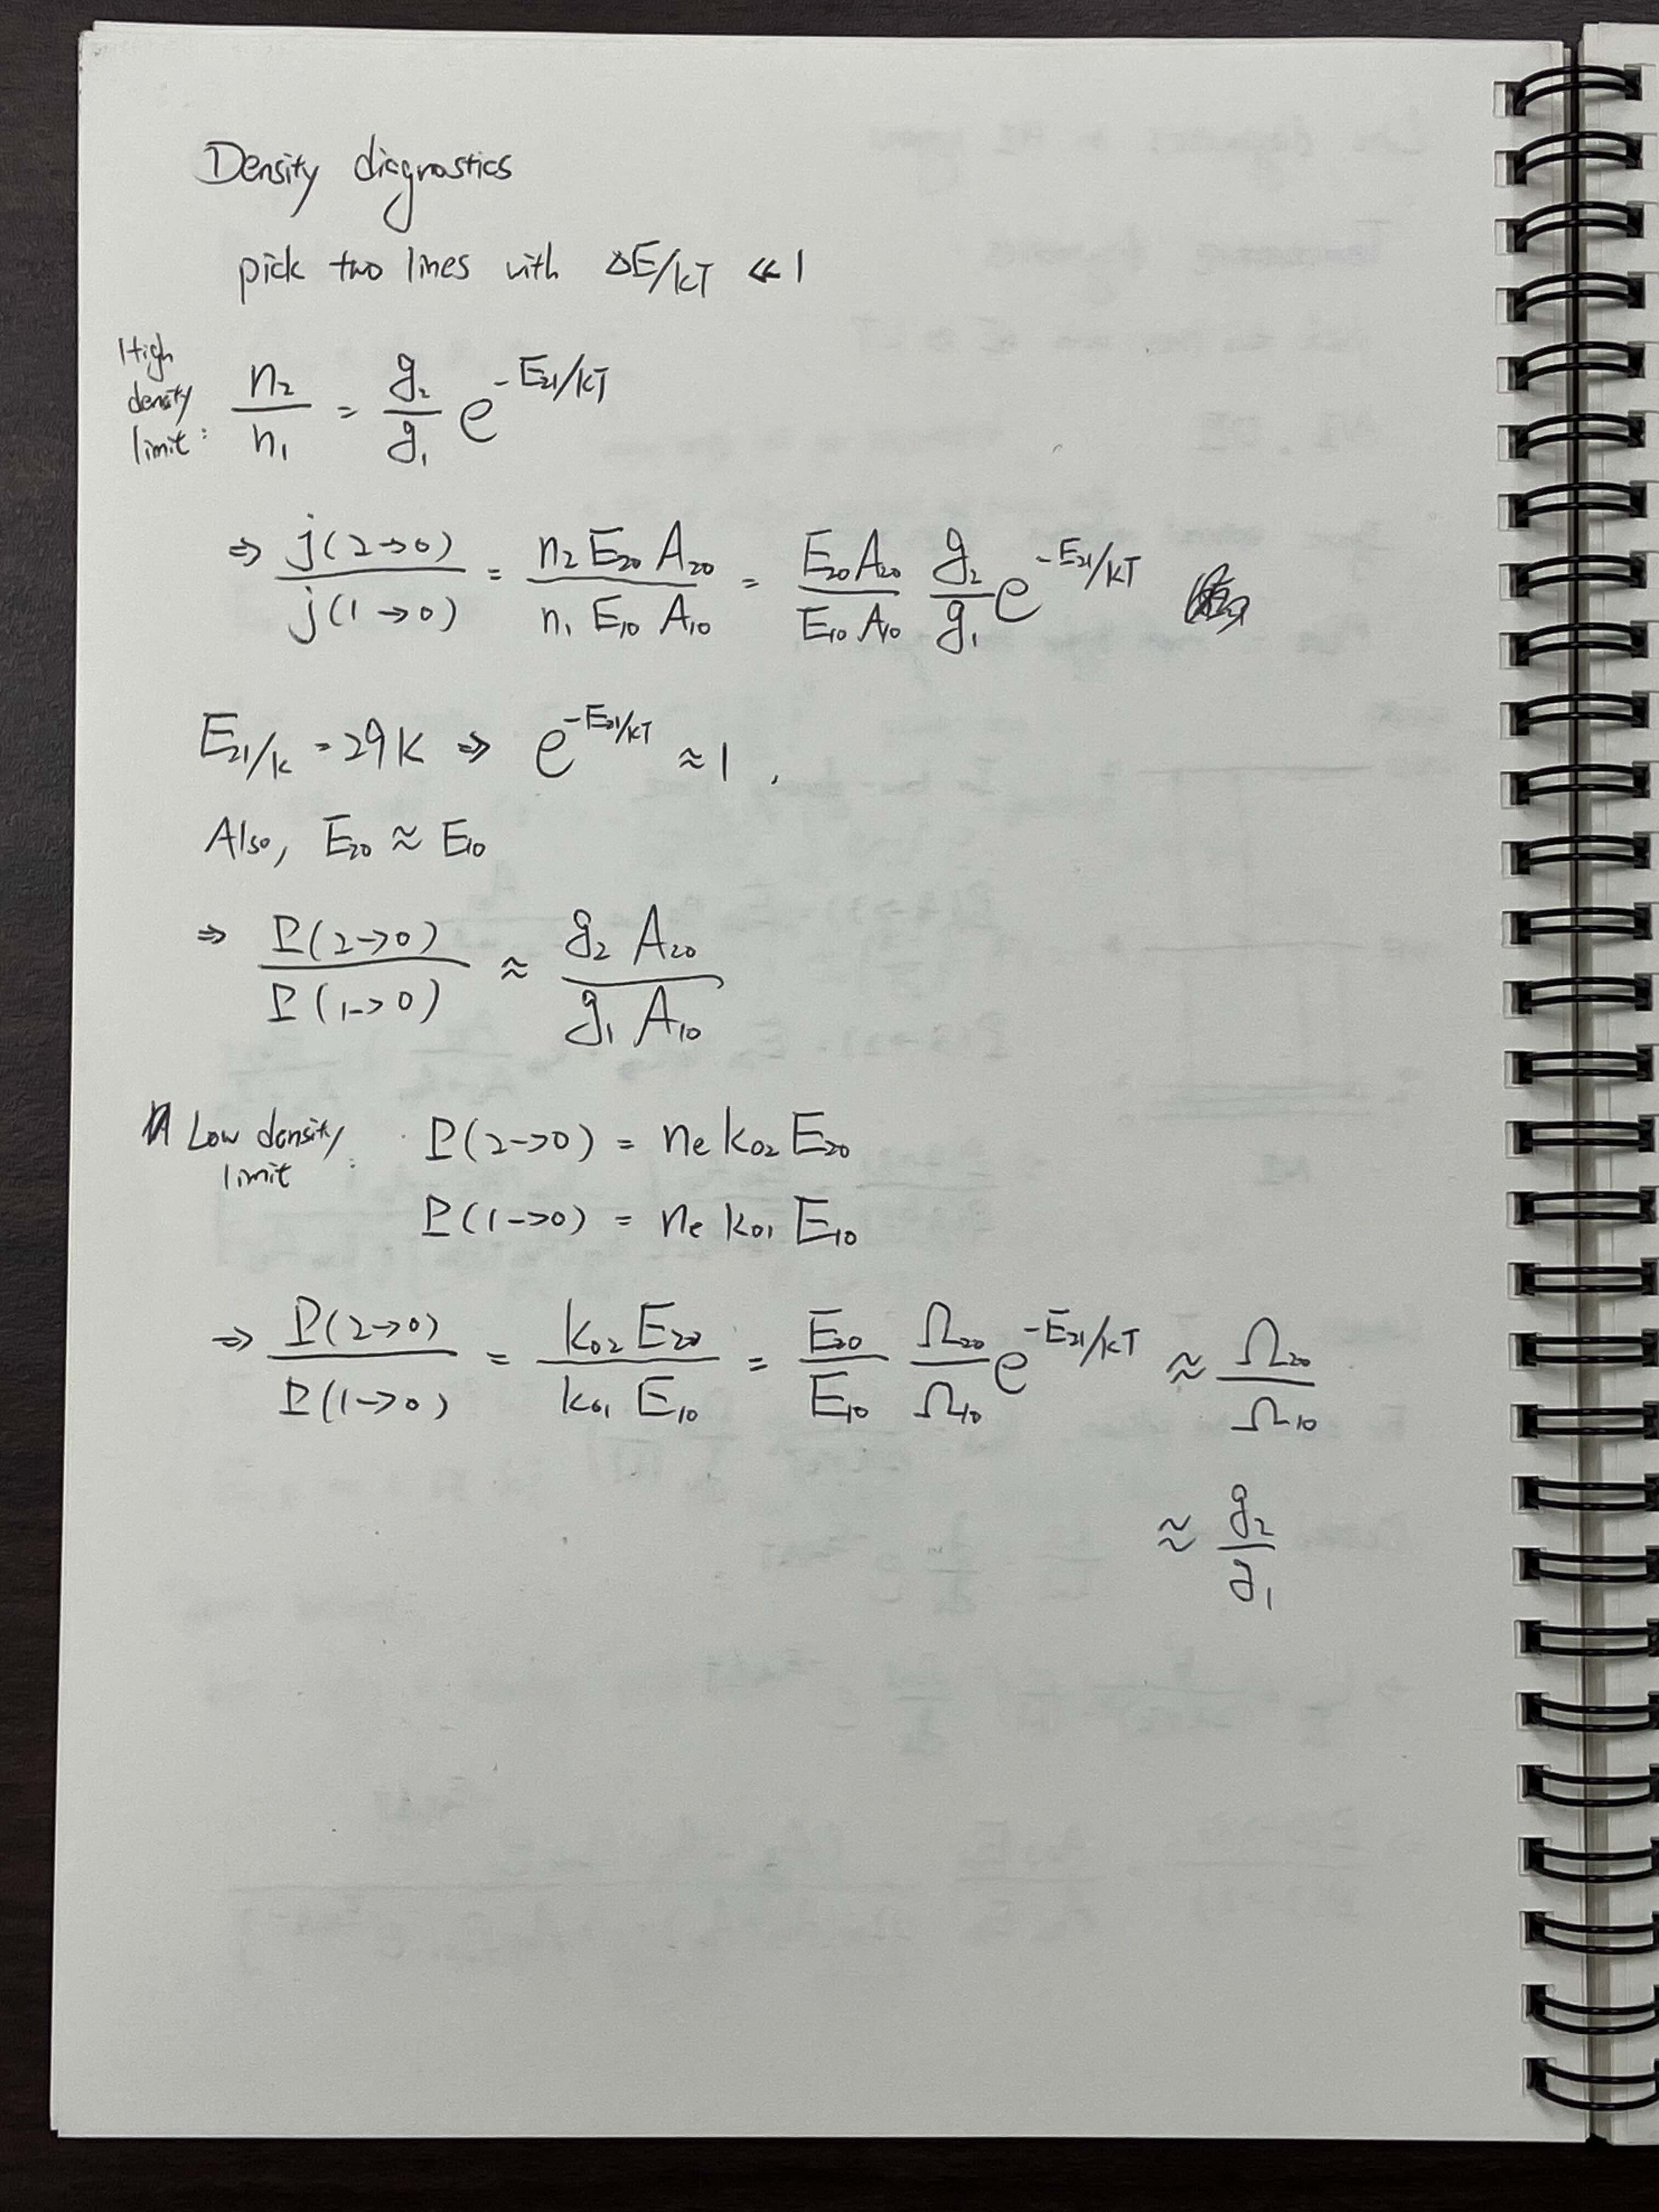 Density diagnostics
pick two lines with ΔE/kT ≪ 1
High density limit: n₂/n₁ = g₂/g₁ e^(-E₂₁/kT)
⇒ j(2→0)/j(1→0) = n₂ E₂₀ A₂₀/n₁ E₁₀ A₁₀ = E₂₀ A₂₀/E₁₀ A₁₀ g₂/g₁ e^(-E₂₁/kT)
E₂₁/k = 29K ⇒ e^(-E₂₁/kT) ≈ 1,
Also, E₂₀ ≈ E₁₀
⇒ P(2→0)/P(1→0) ≈ g₂ A₂₀/g₁ A₁₀
Low density limit: P(2→0) = nₑ k₀₂ E₂₀
P(1→0) = nₑ k₀₁ E₁₀
⇒ P(2→0)/P(1→0) = k₀₂ E₂₀/k₀₁ E₁₀ = E₂₀/E₁₀ Ω₂₀/Ω₁₀ e^(-E₂₁/kT) ≈ Ω₂₀/Ω₁₀
≈ g₂/g₁